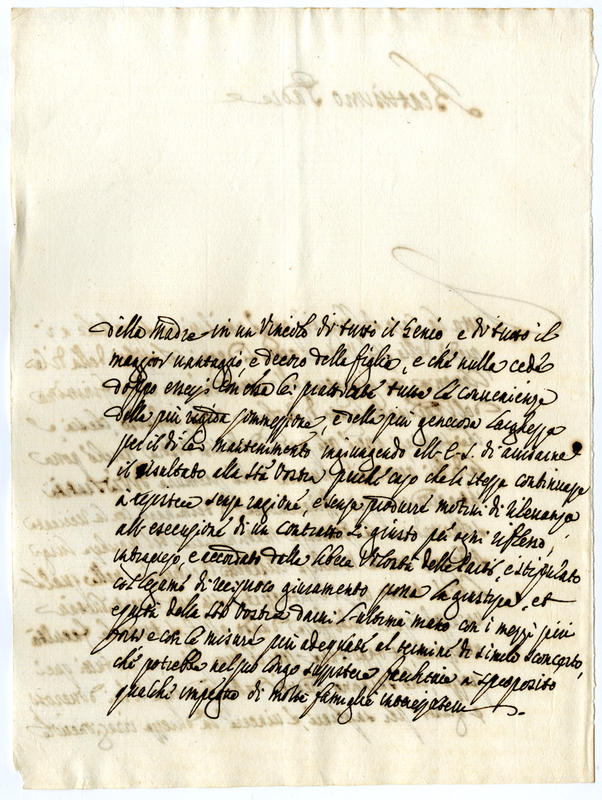 della Madre in un Vincolo di tutto il Genio, e di tutto il
maggior vantaggio, e decoro della figlia, e che nulla cede
doppo essersi con che la praticate tutte le convenienze
della più rigida sommessione, e della più generosa larghezza
per il di lei mantenimento ingiungendo all' E. S. di avvisarne
il risultato alla Stà Vostra perché caso che la stessa continuasse
a repistere senza ragione, e senza produrre motivi di rilevanza
all' esecuzione di un contratto sì giusto per ogni riflesso,
intrapreso, e accordato dalla libera Volontà delle Parti, e stipulato
col legame di reciproco giuramento possa la giustizia, et
equità della Stà Vostra darci l'ultima mano con i mezzi più
forti e con le misure più adequate al termine di simile sconcerto,
che potrebbe nel suo lungo sussistere a sproposito
qualche impegno di molte famiglie interessatevi